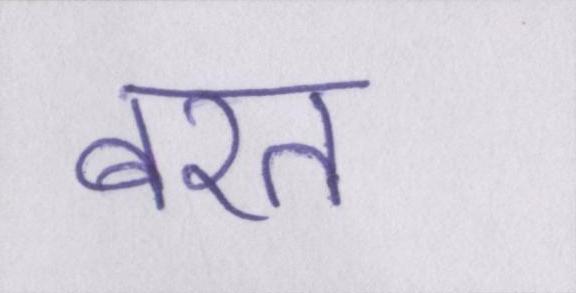 बरत